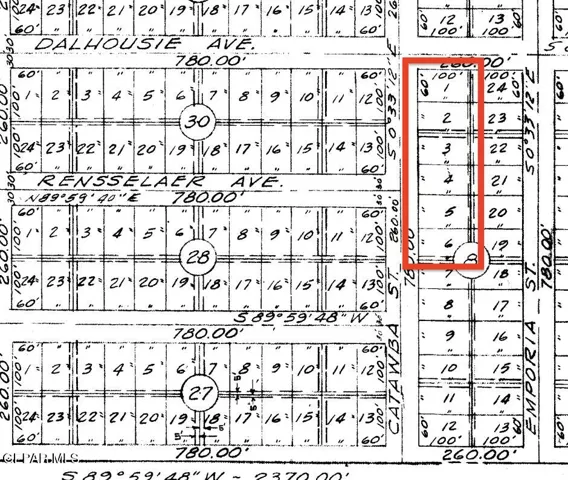 24 23 22 21 20 19 18 17 16 15 14 13
60' 12 13 60'
100' 100'
DALHOUSIE AVE.
780.00'
260.00'
60' 60'
1 2 3 4 5 6 7 8 9 10 11 12
30
24 23 22 21 20 19 18 17 16 15 14 13
60' 60'
RENSSELAER AVE.
N89°59'40"E 780.00'
60' 60'
1 2 3 4 5 6 7 8 9 10 11 12
28
24 23 22 21 20 19 18 17 16 15 14 13
60' 60'
S 89°59'48" W
780.00'
60' 60'
1 2 3 4 5 6 7 8 9 10 11 12
27
24 23 22 21 20 19 18 17 16 15 14 13
60' 60'
780.00'
S 89°59'48" W ~ 2370.00'
260.00'
260.00'
260.00'
S 0°33'12" E
260.00'
780.00'
CATAWBA ST.
60' 100' 100'
1 24
2 23
3 22
4 21
5 20
6 19
7 18
8 17
9 16
10 15
11 14
12 13
60' 100' 100' 60'
260.00'
S 0°33'12" E
780.00'
EMPORIA ST.
GEPAR MLS